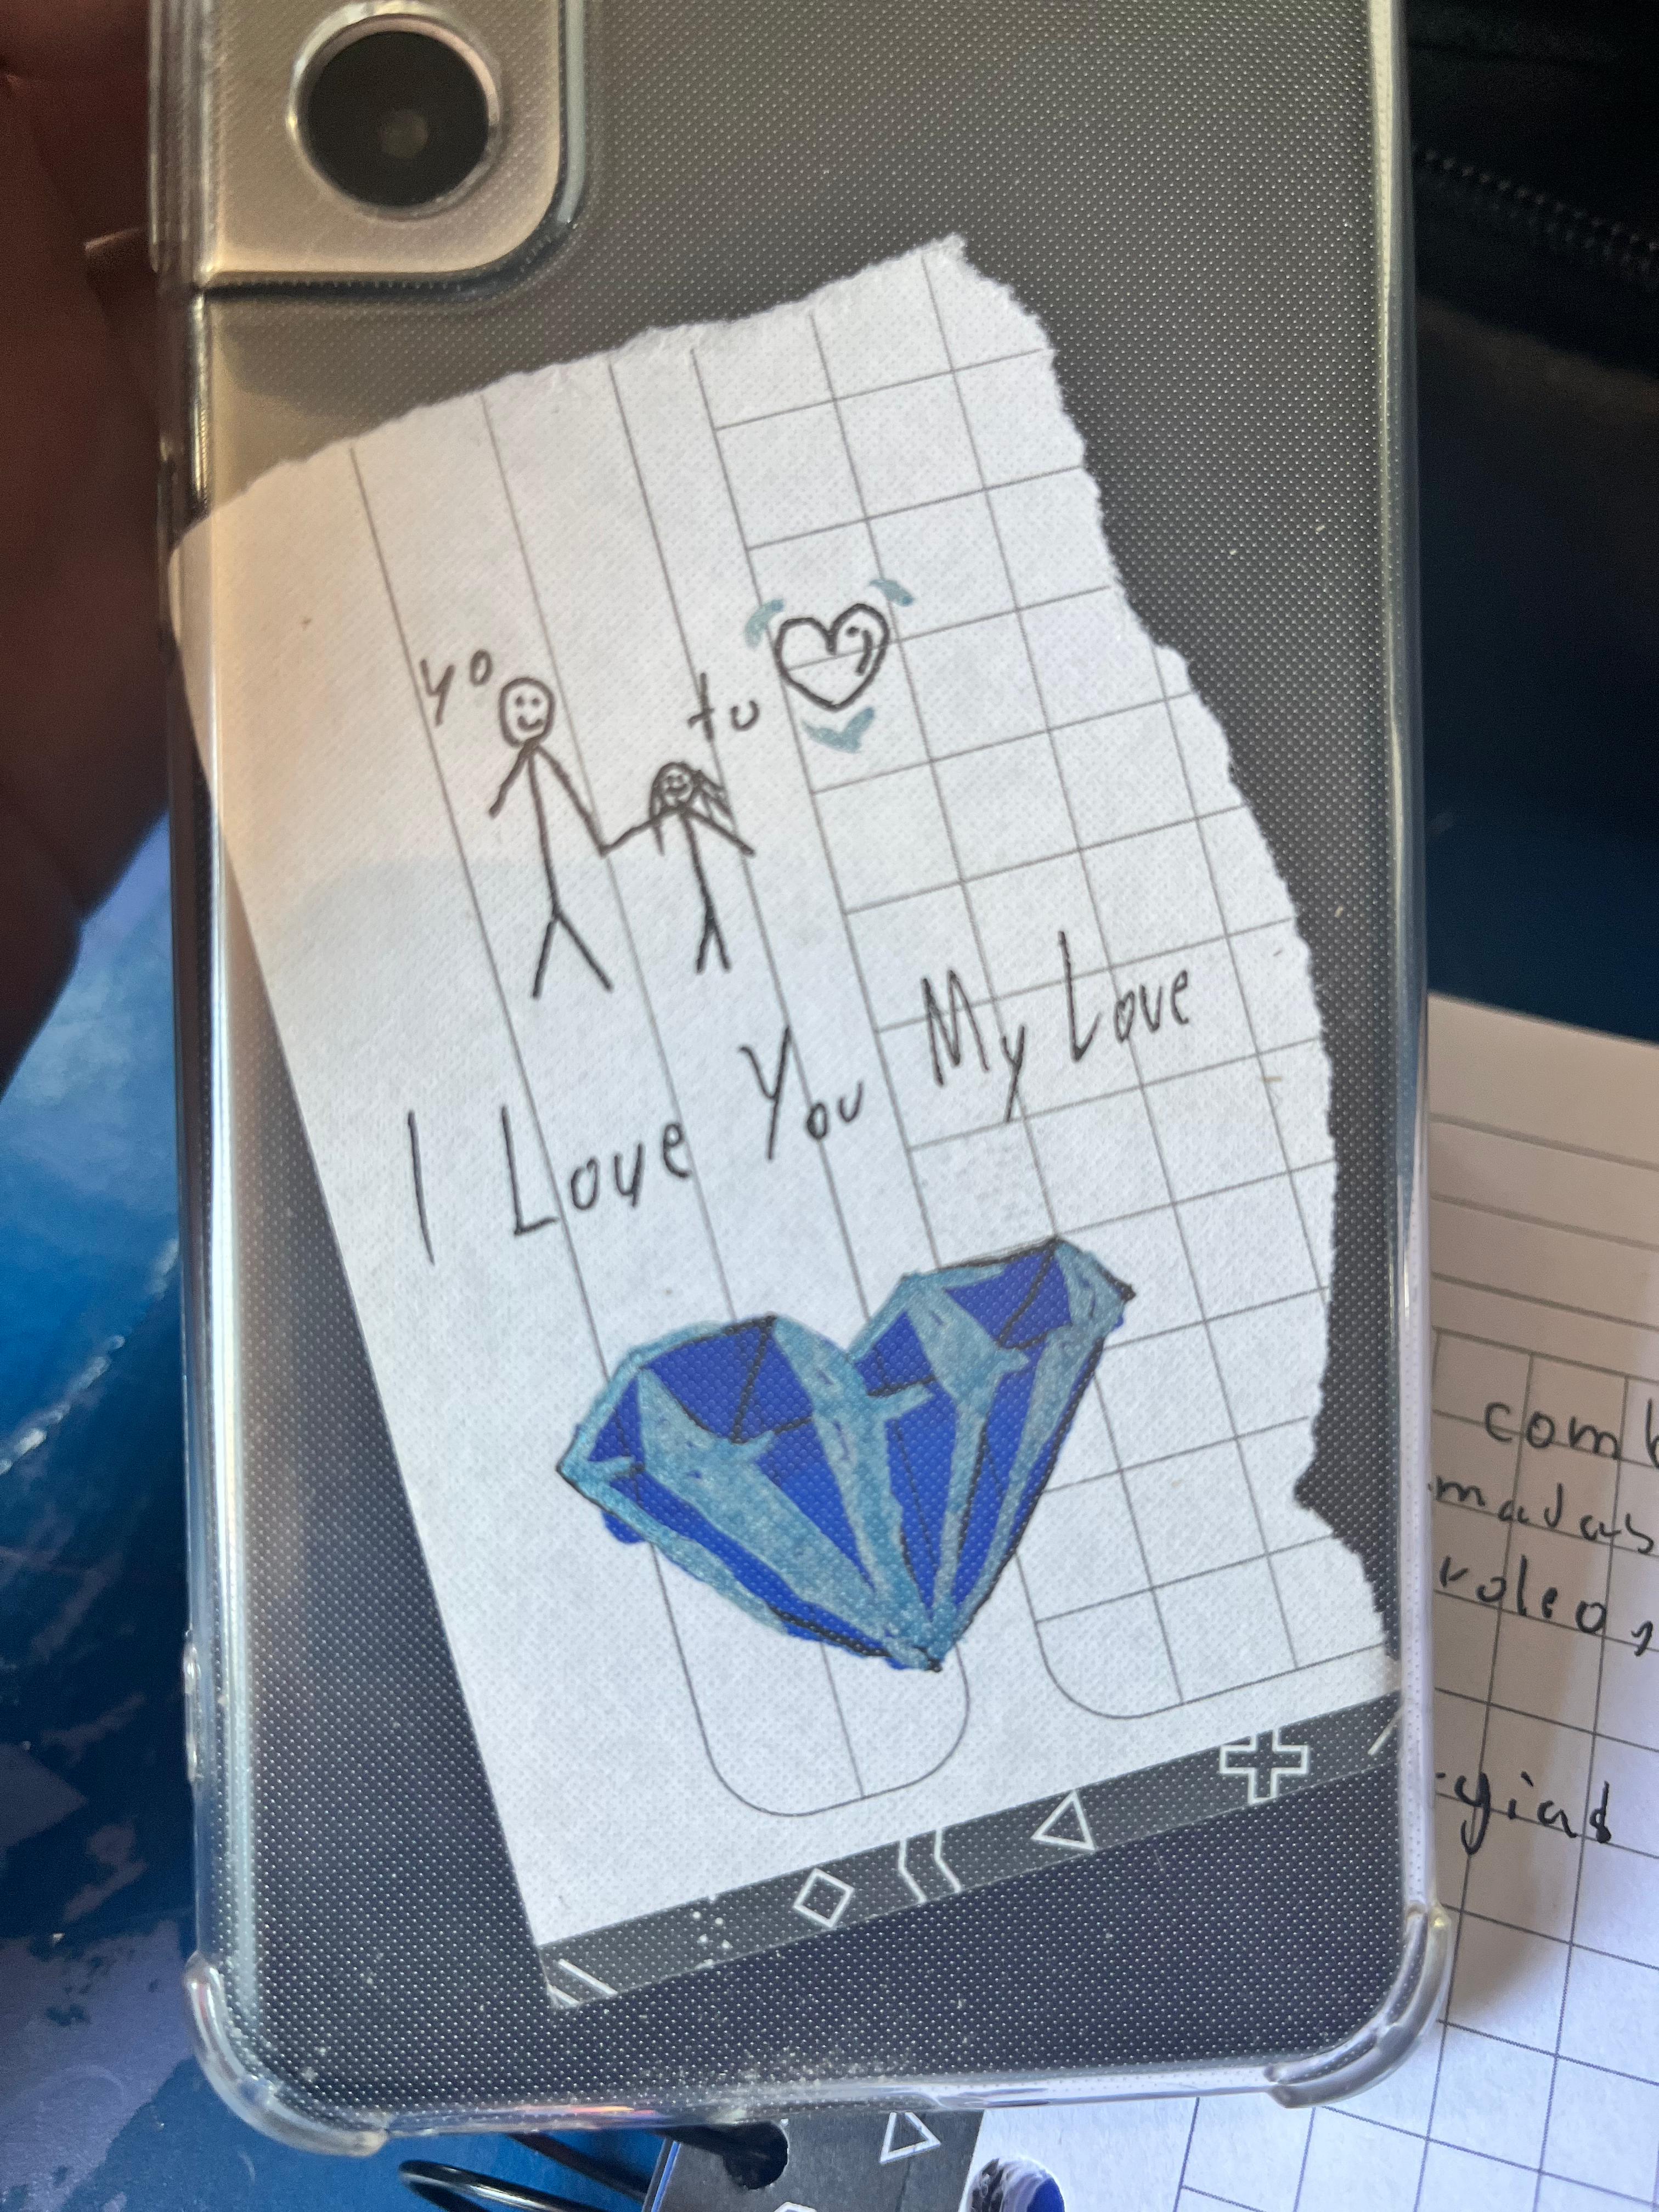 yo
tu
I Love You My Love
comb
madas
roleo,
gias